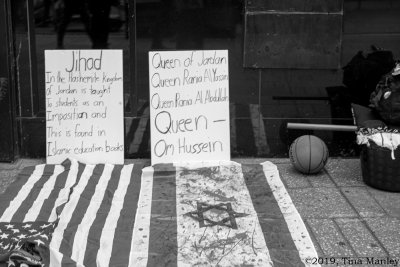 Jihad
In the Hashemite Kingdom
of Jordan is taught
To students as an
Imposition and
This is found in
Islamic education books
Queen of Jordan
Queen Rania Al Yassin
Queen Rania Al Abdullah
Queen —
Om Hussein
©2019, Tina Manley